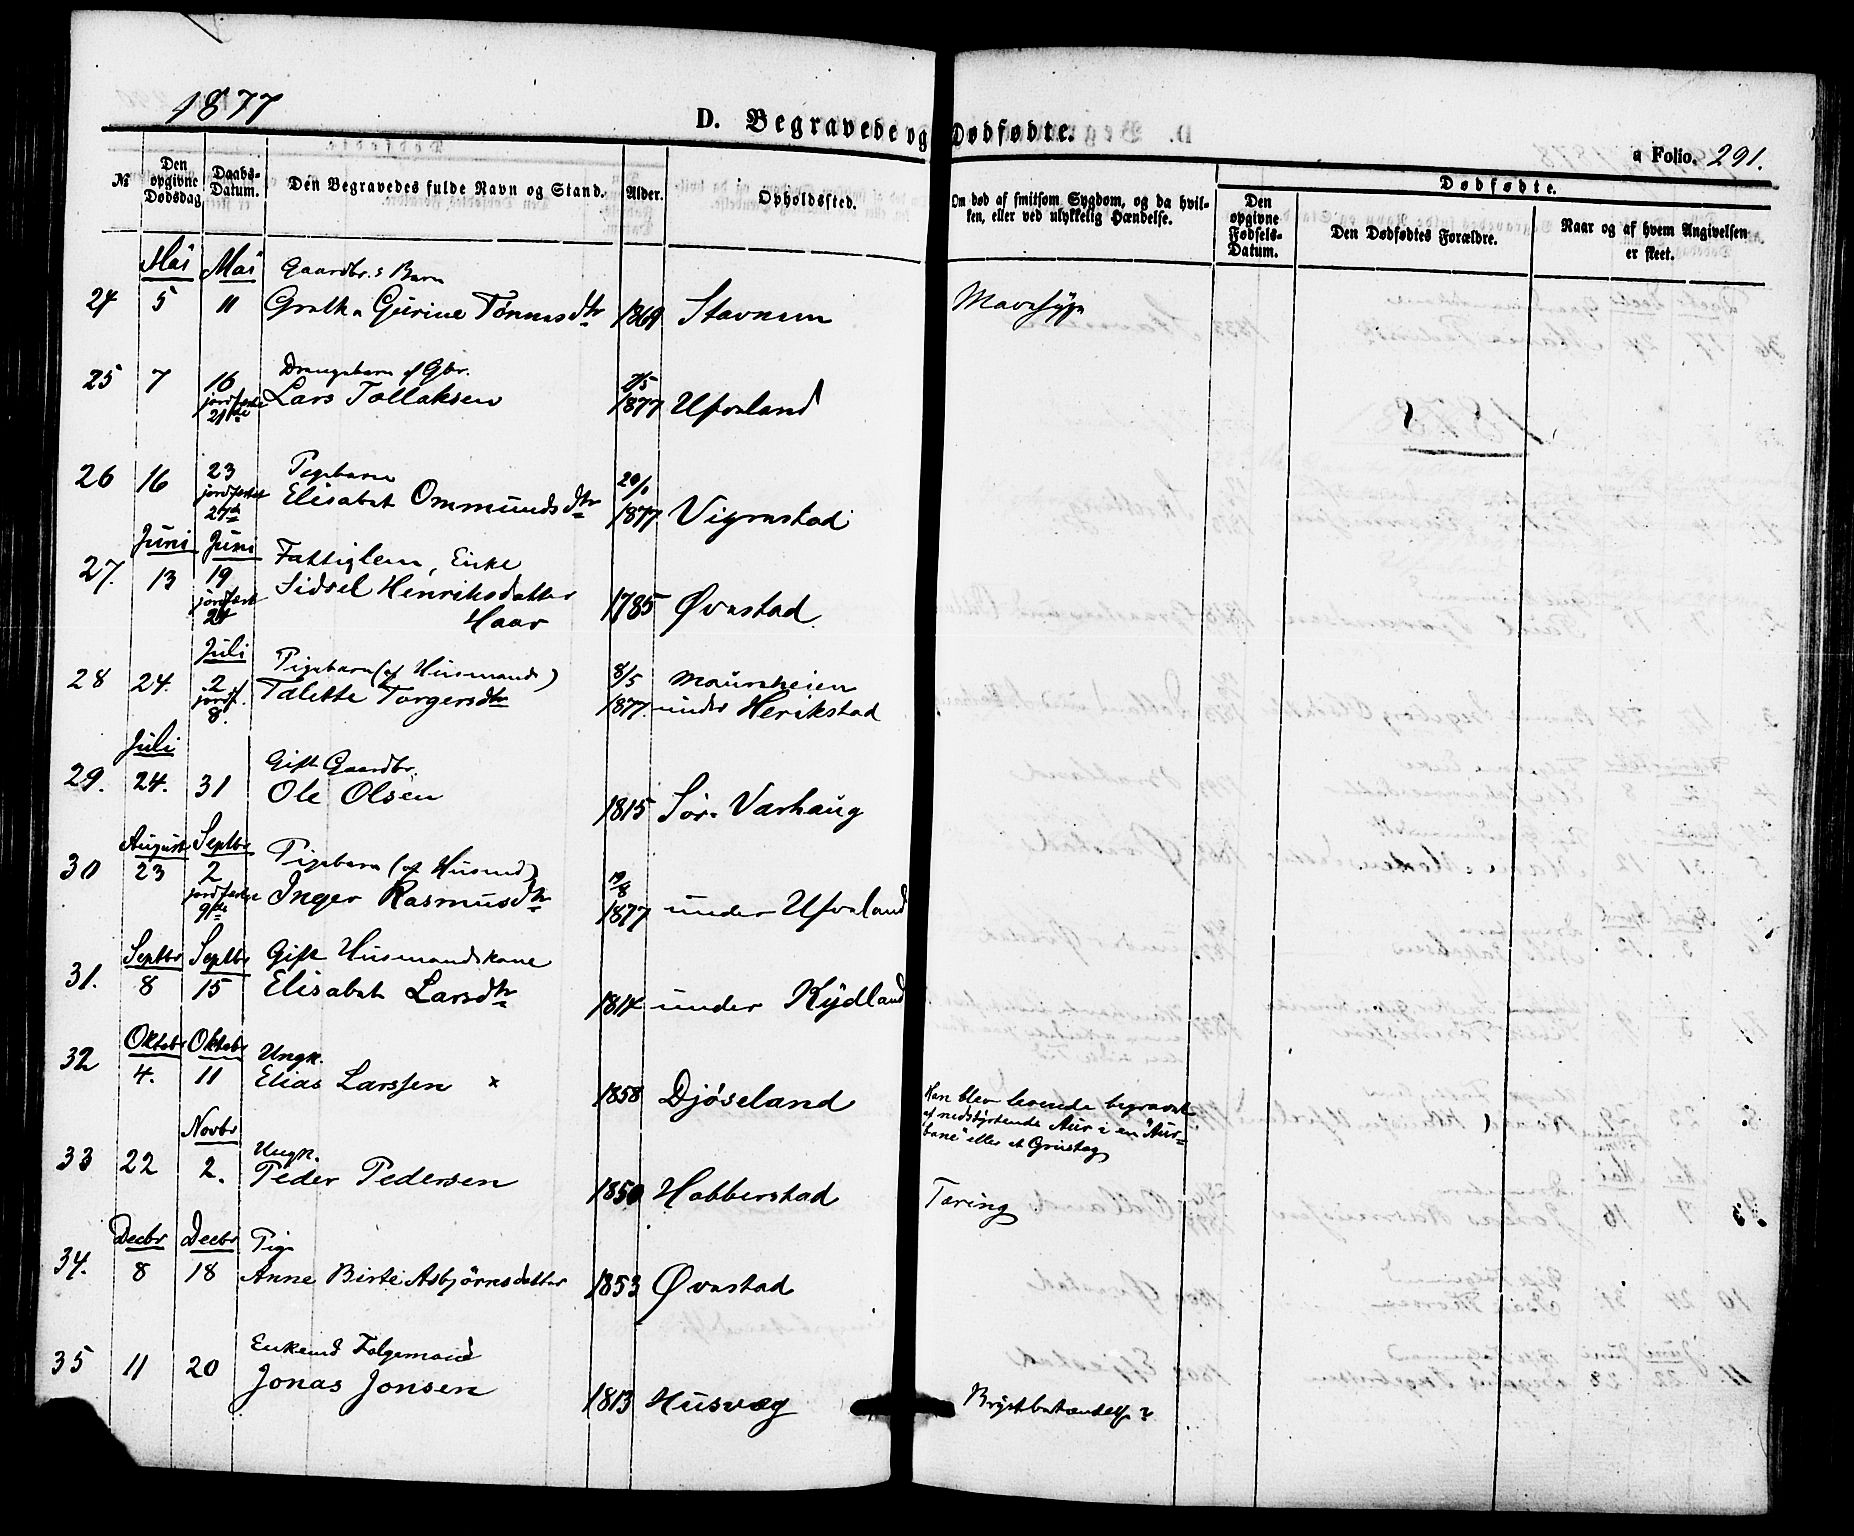 1877
D. Begravede og Dødfødte.
a Folio. 291.
№
Den opgivne Dødsdag
Daabs-Datum.
Den Begravedes fulde Navn og Stand.
Alder.
Opholdssted.
Om død af smitsom Sygdom, og da hvil-
ken, eller ved ulykkelig Hændelse.
Dødfødte.
Den opgivne Fødsels-Datum.
Den Dødfødtes Forældre.
Naar og af hvem Angivelsen
er skeet.
Mai Mai Gaardbr.s Barn
24 5 11 Grethe Gurine Tønnesdtr 1869 Stavnem Mavesyge
Drengebarn af Gbr.
25 7 16 Lars Tollaksen 7/5 1877 Ufseland
jordfæstet
21de
Pigebarn
26 16 23 Elisabet Ommundsdtr 1877 Vigrestad
jordfæstet
27de
Juni Juni Fattiglem, Enke
27. 13 19 Sidsel Henriksdatter 1785 Øvestad
jordfæstet
24 Haar
Juli Pigebarn (af Husmand)
28 24. 2 Talette Torgersdtr 8/5 1877. Maursheien
jordf. under Herikstad
8.
Juli Gift Gaardbr.
29. 24. 31 Ole Olsen 1815 Sør-Varhaug
August Septbr Pigebarn (af Husmd)
30 23 2 Inger Rasmusdtr 19/8 1877 under Ufseland
jordfæstet
9de
Septbr Septbr Gift Husmandskone
31. 8 15 Elisabet Larsdtr 1814 under Kydland
Oktobr Oktobr Ungk.
32 4. 11 Elias Larssen x 1858 Djøseland Han blev levende begravet
af nedstyrtende Aur i en "Aur-
bane" eller et Grustag
Novbr Ungk.
33 22 2. Peder Pedersen 1850 Hobberstad Tæring
Decbr Decbr Pige
34. 8 18 Anne Birte Asbjørnsdatter 1853 Øvestad
Enkemd Folgemand
35 11 20 Jonas Jonsen 1813 Husvæg Brystbetændelse?